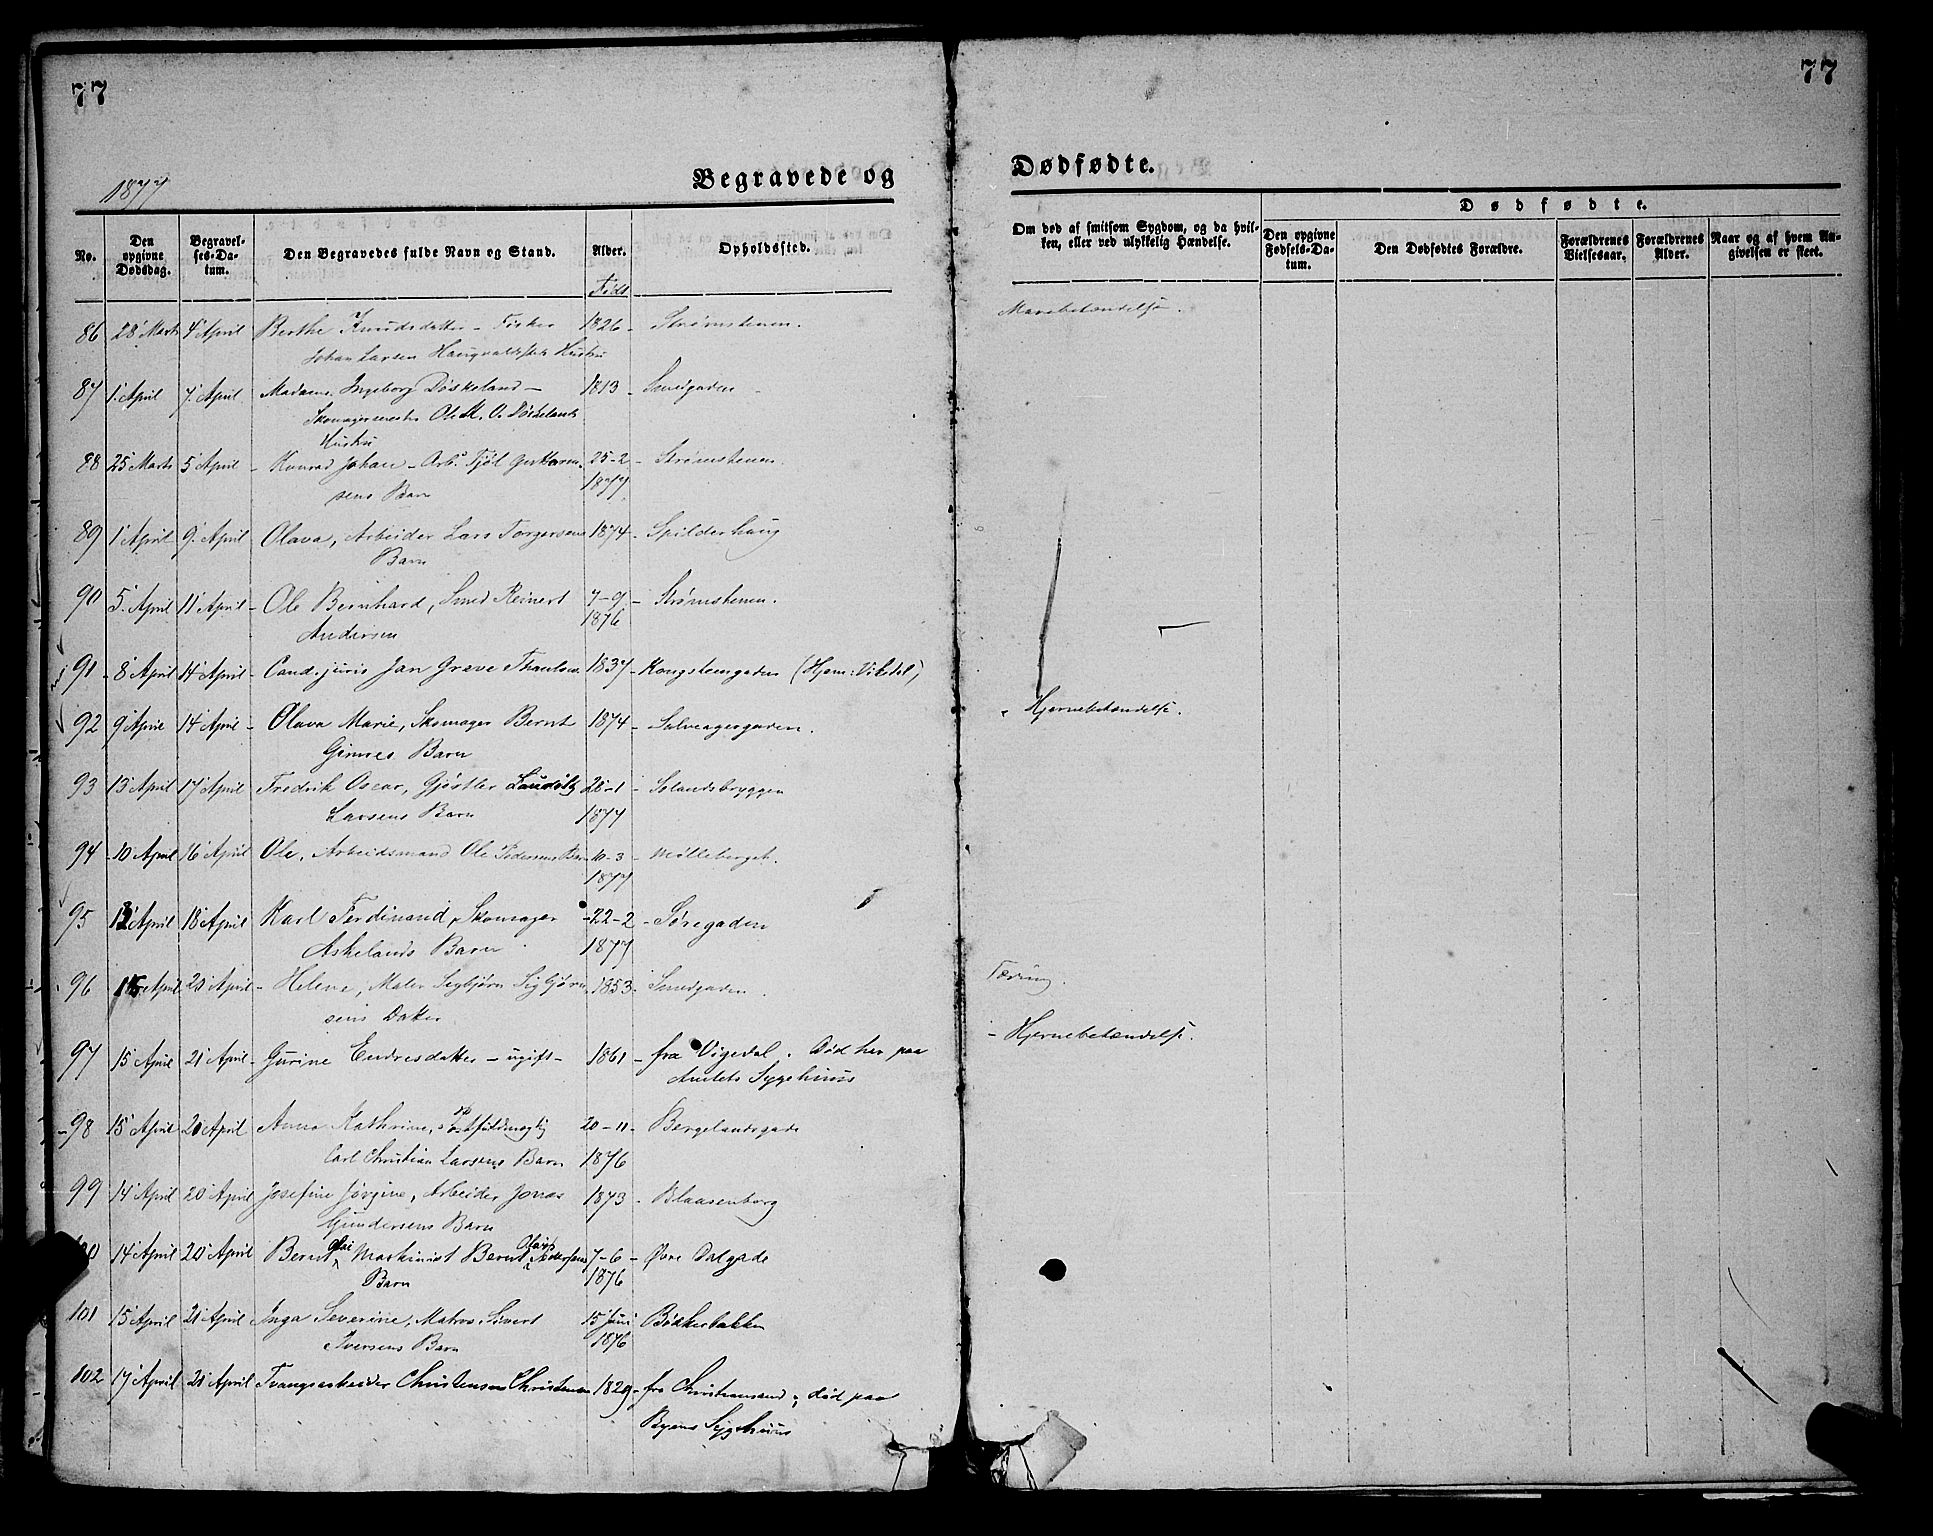 77
77
1877
Begravede og
Dødfødte.
No.
Den opgivne Dødsdag.
Begravelses-Datum.
Den Begravedes fulde Navn og Stand.
Alder.
Opholdssted.
Om død af smitsom Sygdom, og da hvilken, eller ved ulykkelig Hændelse.
Dødfødte.
Den opgivne Fødsels-Datum.
Den Dødfødtes Forældre.
Forældrenes Vielsesaar.
Forældrenes Alder.
Naar og af hvem Angivelsen er skeet.
Født
86 28 Marts 4 April Berthe Knudsdatter – Fisker 1826 – Strømstenen.
Johan Larsen Haugvaldstads Hustru
87 1 April 7 April Madame Ingeborg Døskeland – 1813 – Smedgaden –
Skomagermester Ole M. O. Døskelands
Hustru
88 25 Marts 5 April – Konrad Johan – Arb. 25-2 – Strømstenen.
sens Barn 1877
89 1 April 9 April Olava, Arbeider Lars Torgersens 1874 – Spilderhaug
Barn
90 5 April 11 April – Ole Bernhard, Smed Reinert 7-9 – Strømstenen.
Andersen 1876
91 – 8 April 14 April – Cand. juris Jan Greve Thaulow 1837 – Kongsteensgaden (Hjem: Vikedal)
92 9 April 14 April – Olava Marie, Skomager Bernt 1874 – Solvaagergaden.
Gimres Barn
Hjernebetændelse.
93 13 April 17 April Fredrik Oscar, Gjørtler 28-1 – Sølandsbryggen
Larsens Barn 1877
94 – 10 April 16 April Ole, Arbeidsmand Ole Pedersens Barn 10-3 – Mølleberget.
1877
95 April 18 April Karl Ferdinand, Skomager – 22-2 – Søregaden
Askelands Barn 1877
96 15 April 21 April – Helene, Maler Sigbjørn Sigbjørn- 1853 – Smedgaden.
sens Datter
Tæring.
97 15 April 21 April – Gurine Endresdatter – ugift – 1861 – fra Vigedal. Død her paa
Amtets Sygehuus
– Hjernebetændelse.
98 15 April 20 April Anna Kathrine, Postfuldmægtig 20-11 – Bergelandsgade
Carl Christian Larsens Barn 1876
99 14 April 20 April Josefine Jørgine, Arbeider Jonas 1873 – Blaasenborg
Gundersens Barn
100 14 April 20 April Bernt Olai Maskinist Bernt Pedersens 7-6 – Øvre Dalgade
Barn 1876
101 15 April 21 April Inga Severine, Matros Sivert 15 Juni Bøkkerbakken
Iversens Barn 1876
102 17 April 21 April Tvangsarbeider Christensen 1829 – fra Christiansand, død paa
Byens Sygehuus